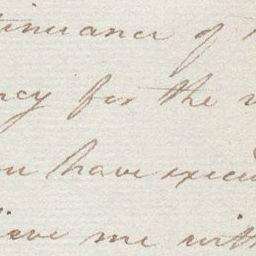 tinuance of
ncy for the
ou have execu
lieve me with